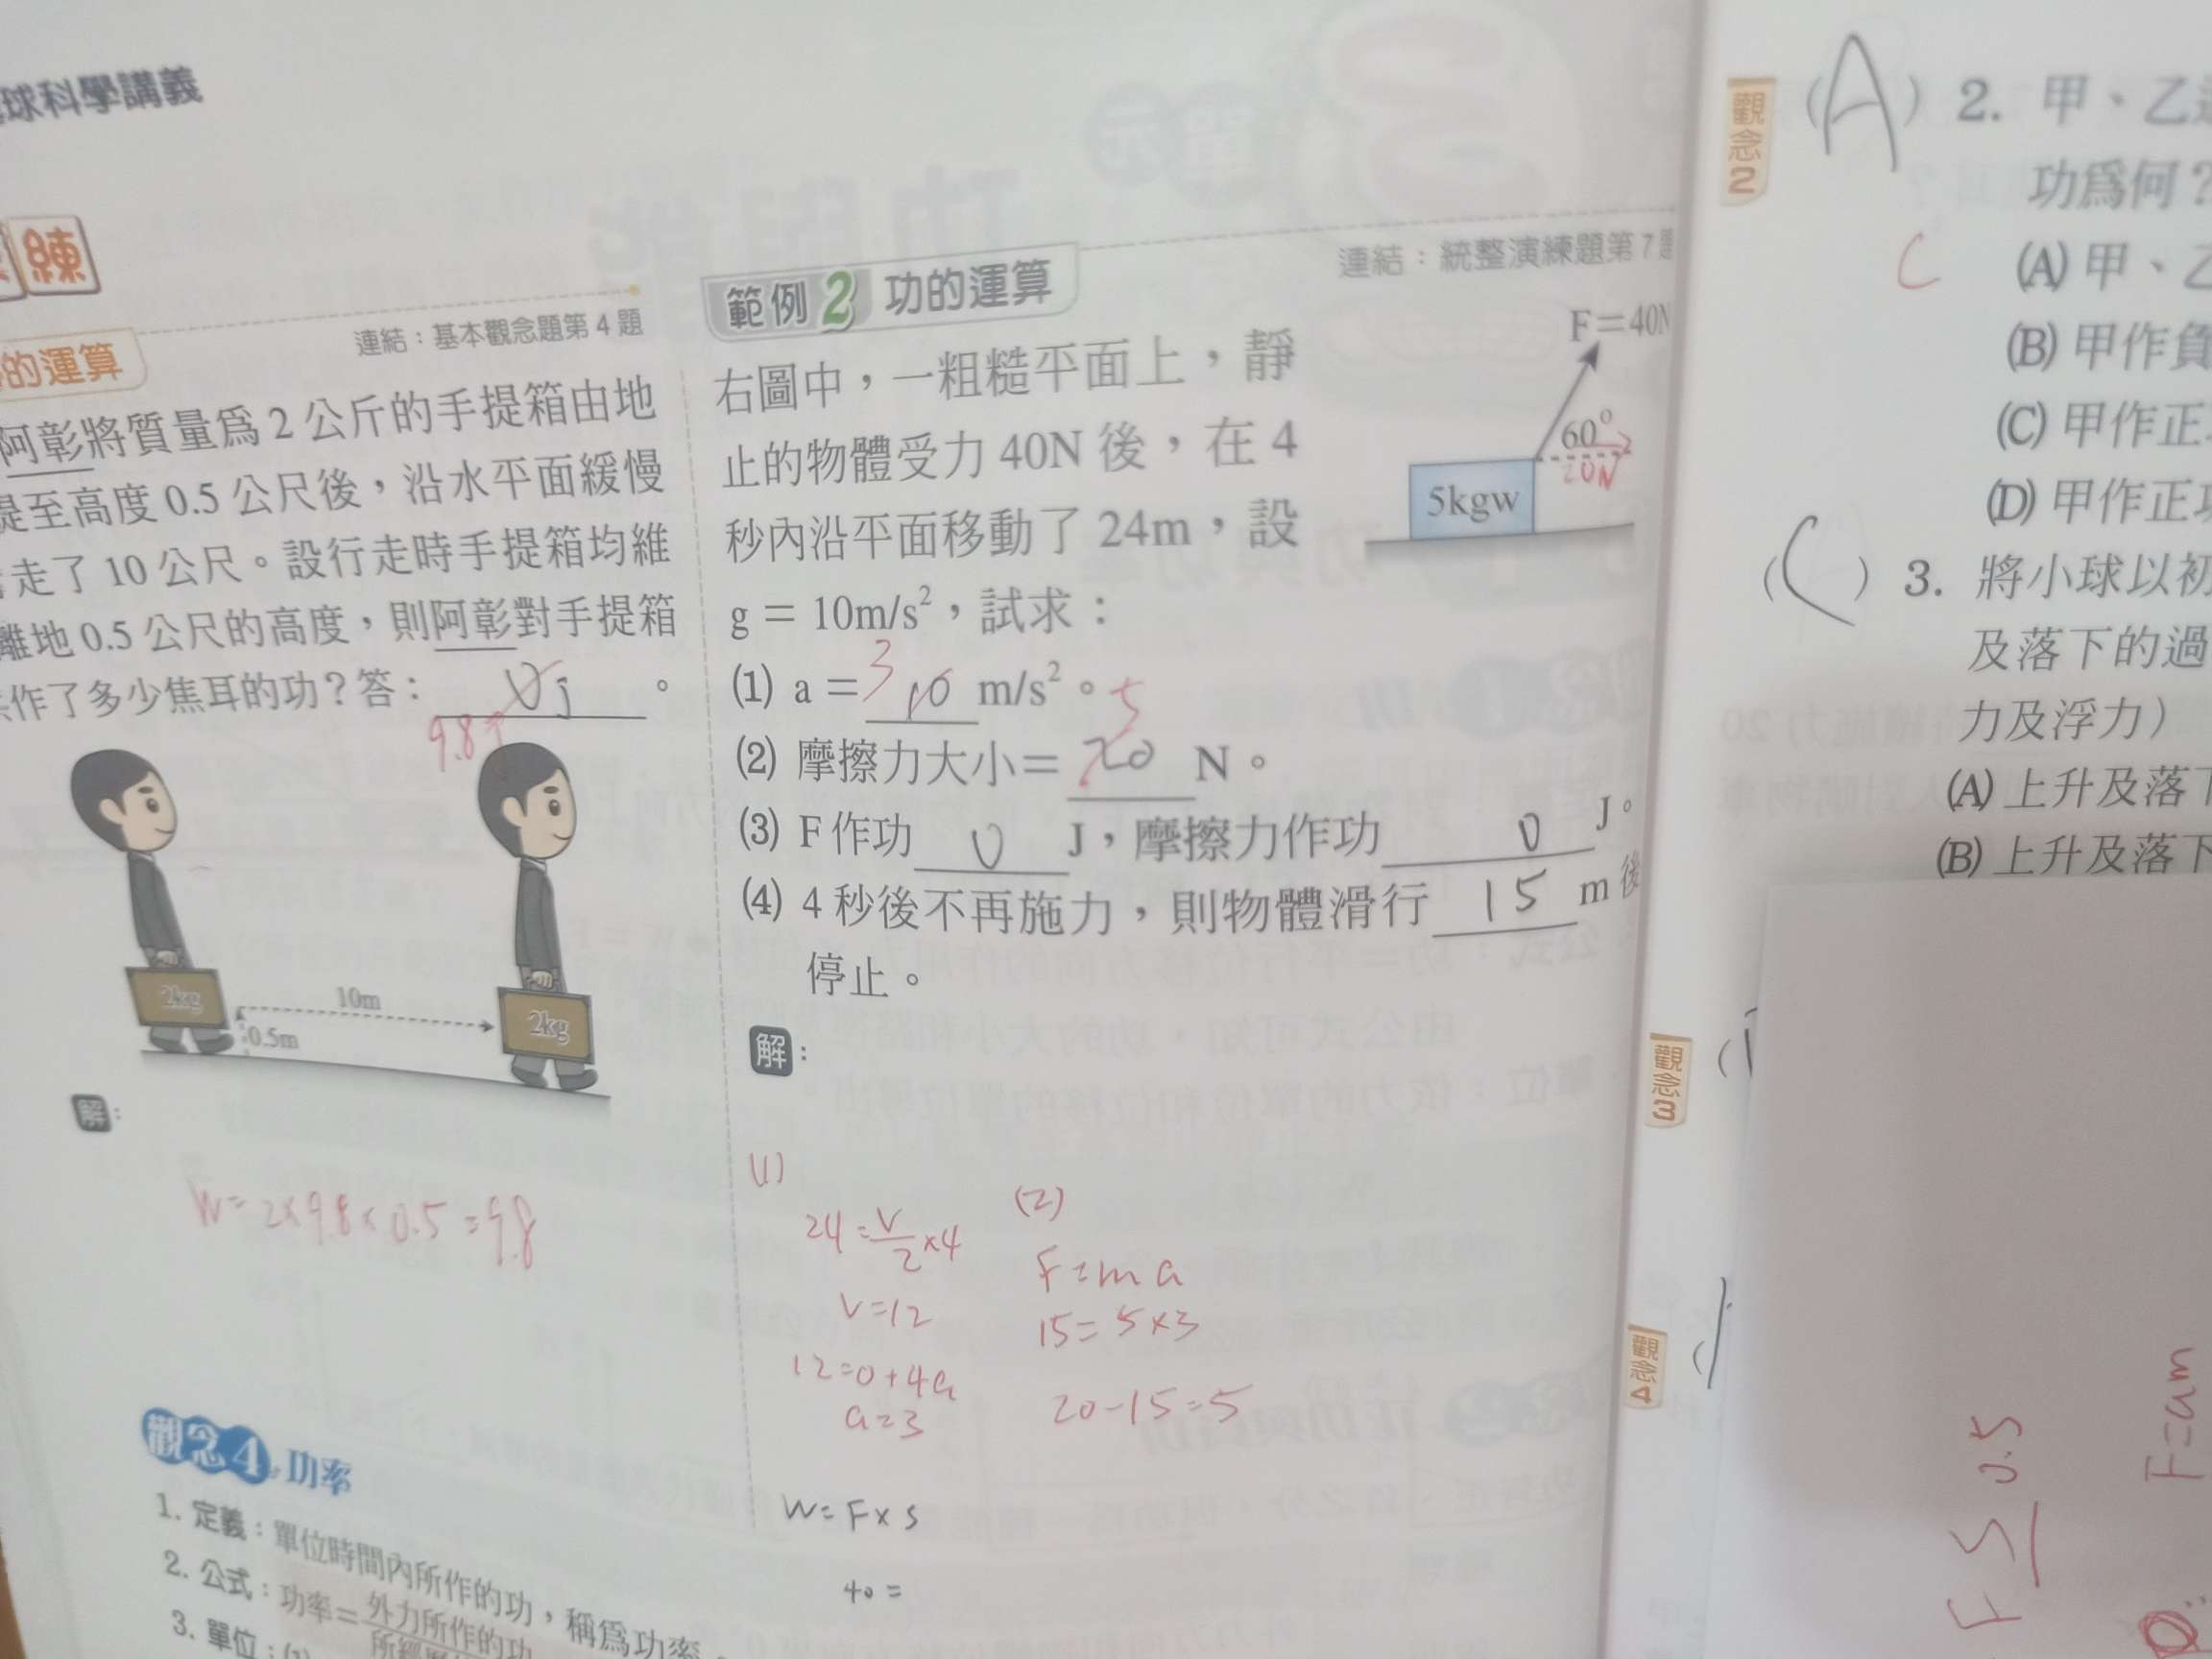 球科學講義
練
的運算
連結：基本觀念題第4題
阿彰將質量為2公斤的手提箱由地
提至高度0.5公尺後，沿水平面緩慢
走了10公尺。設行走時手提箱均維
離地0.5公尺的高度，則阿彰對手提箱
作了多少焦耳的功？答：0J。
9.8J
2kg
10m
0.5m
2kg
解：
W=2×9.8×0.5=9.8
觀念4 功率
1. 定義：單位時間內所作的功，稱為功率。
2. 公式：功率＝外力所作的功
3. 單位：(1)
範例2 功的運算
連結：統整演練題第7題
右圖中，一粗糙平面上，靜
止的物體受力40N後，在4
秒內沿平面移動了24m，設
g＝10m/s²，試求：
F＝40N
60°
20N
5kgw
(1) a＝3 10 m/s²。
5
(2) 摩擦力大小＝20 N。
(3) F作功 0 J，摩擦力作功 0 J。
(4) 4秒後不再施力，則物體滑行 15 m後
停止。
解：
(1)
24=v/2×4
v=12
12=0+4a
a=3
(2)
F=ma
15=5×3
20-15=5
W=F×s
40=
觀念2
(A) 2. 甲、乙
功為何？
C
(A) 甲、乙
(B) 甲作負
(C) 甲作正
(D) 甲作正
(C) 3. 將小球以初
及落下的過
力及浮力）
(A) 上升及落下
(B) 上升及落下
觀念3
觀念4
F S 0.5
F=am